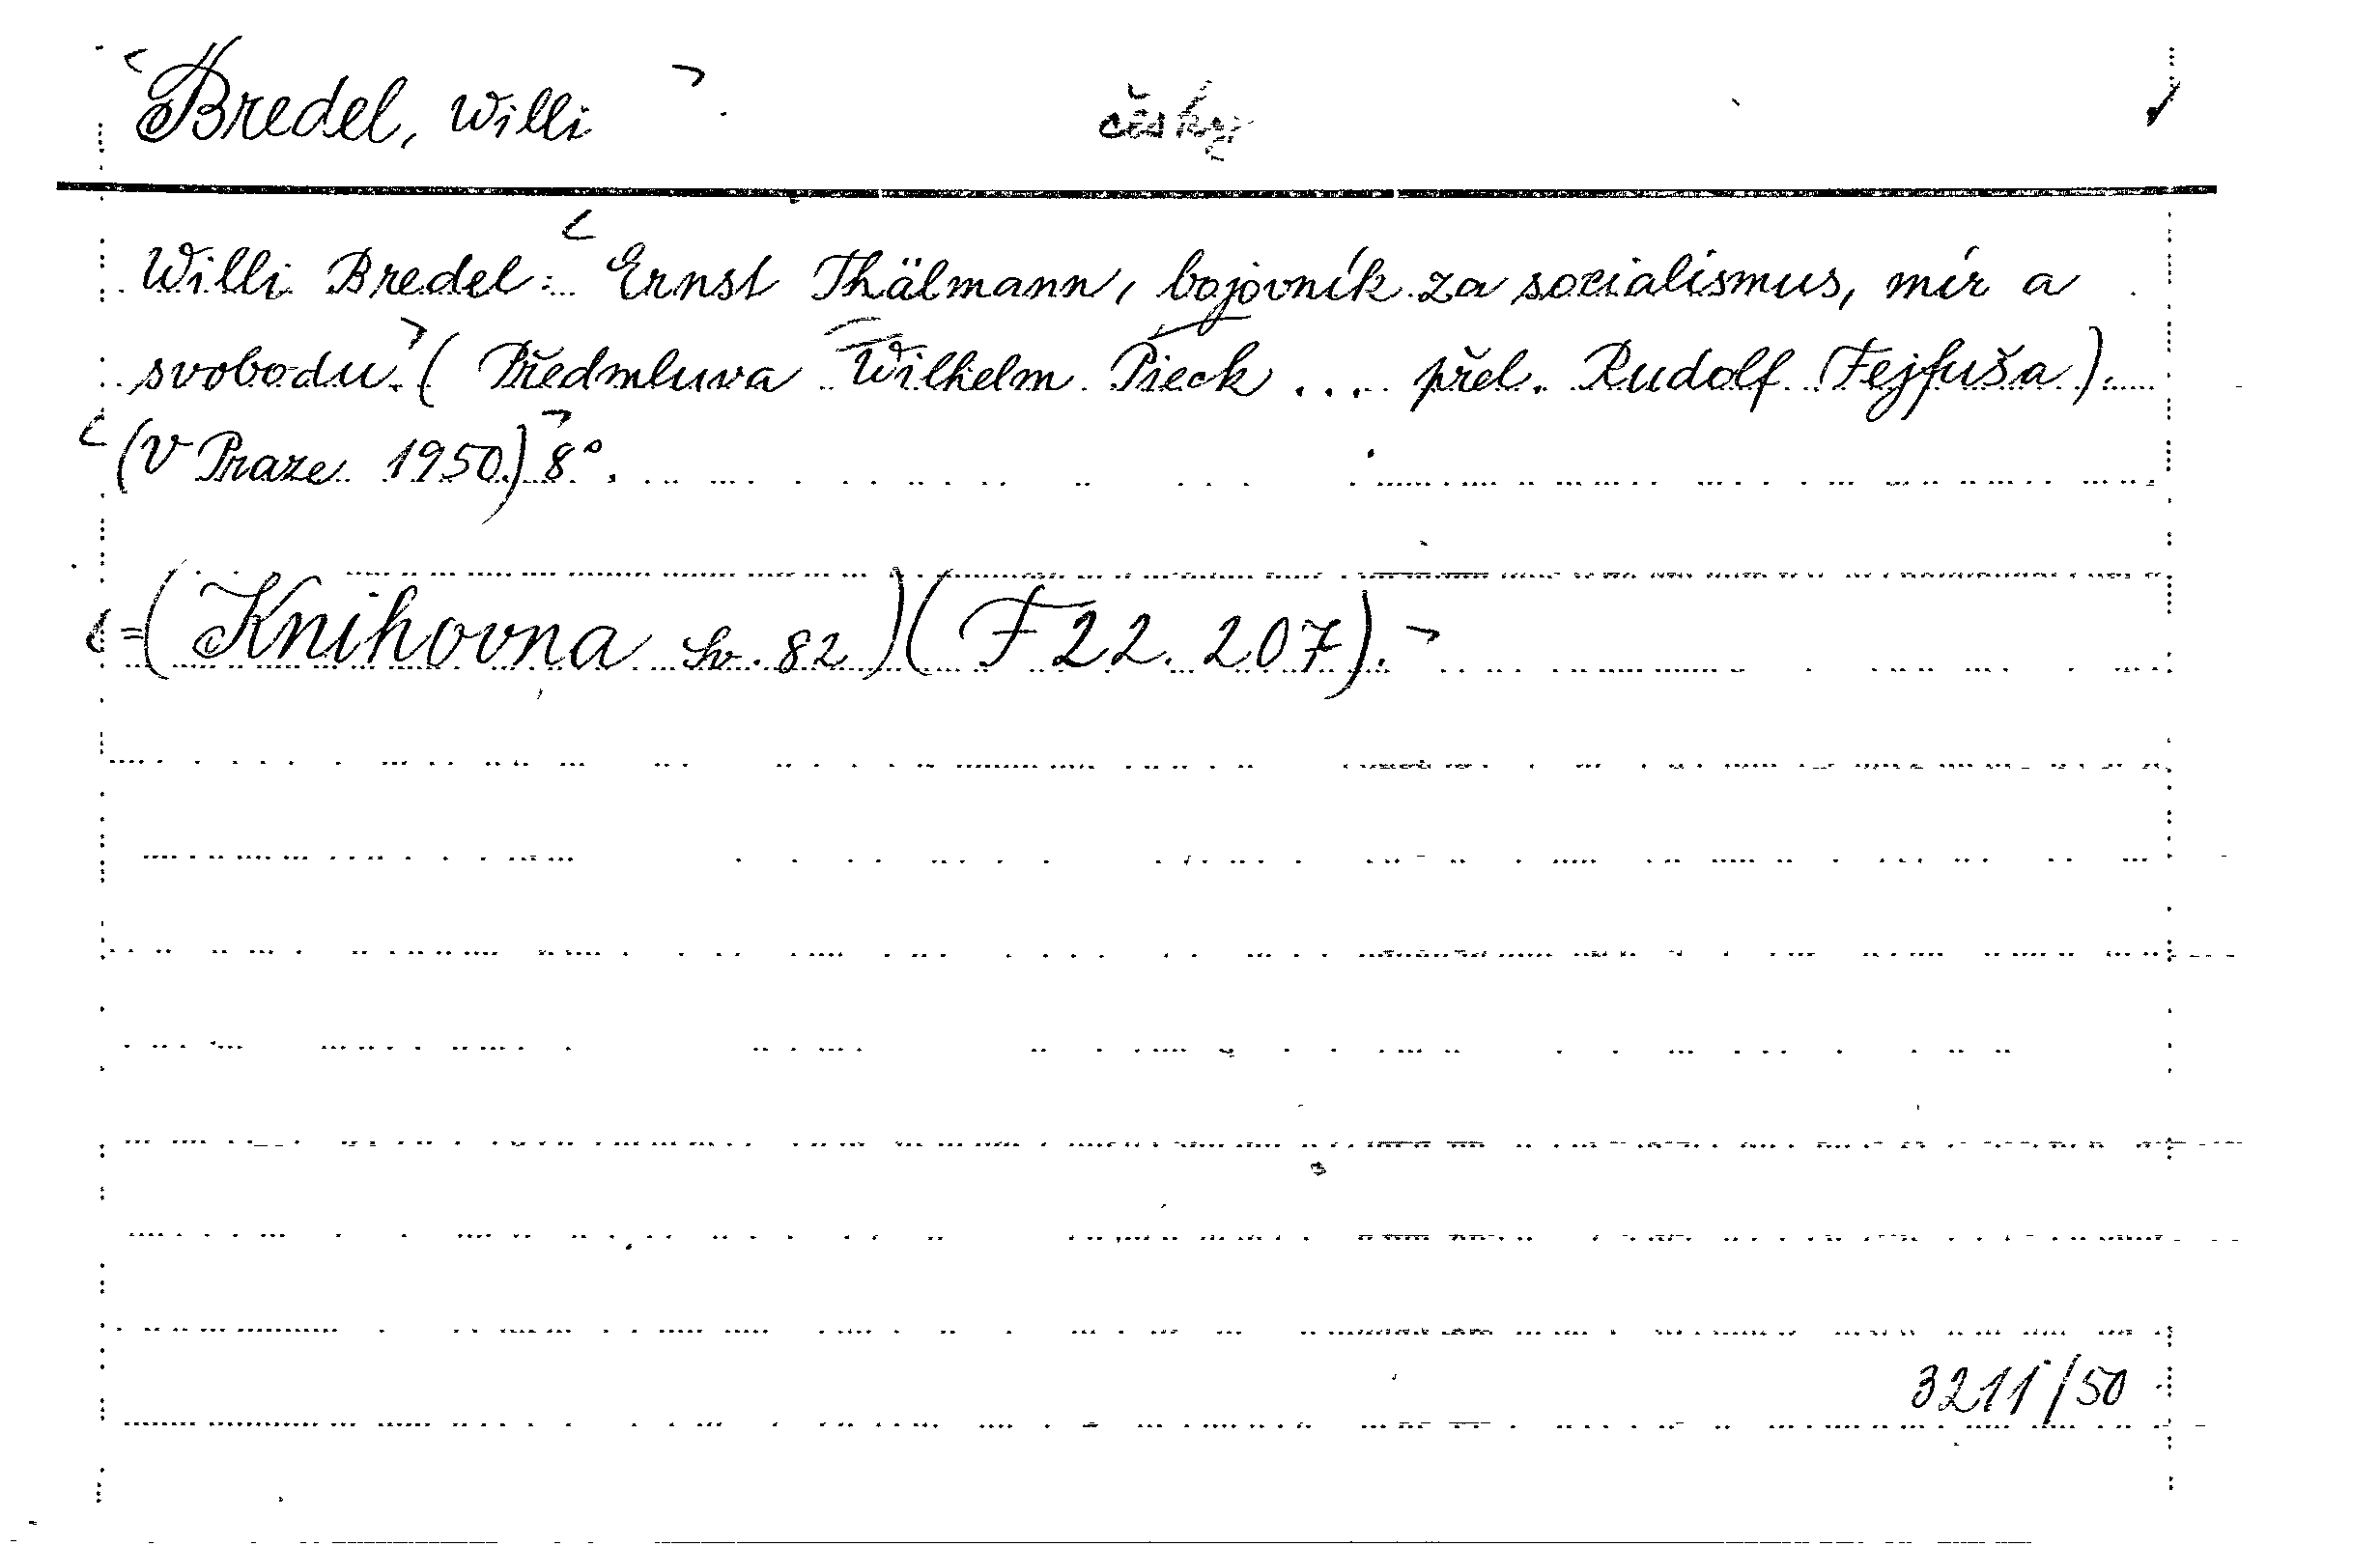 Bredel, Willi česky
Willi Bredel: Ernst Thälmann, bojovník za socialismus, mír a
svobodu. (Předmluva Wilhelm Pieck ... přel. Rudolf Fejfuša).
(V Praze 1950.) 8°.
=(Knihovna sv. 82) (F 22. 207).
3211/50